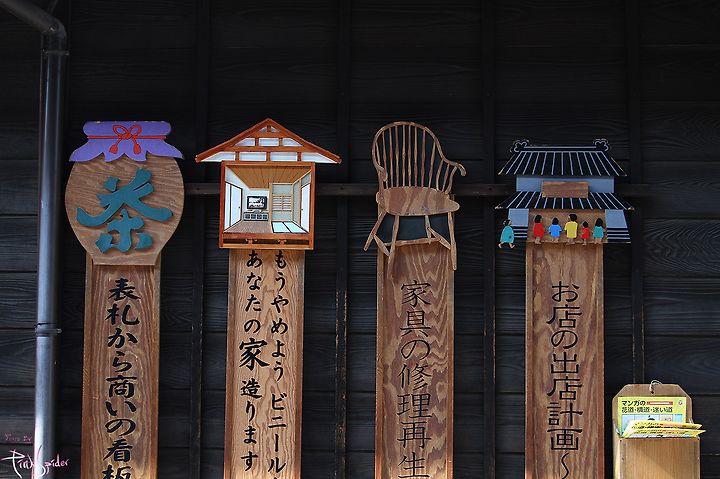 茶
表札から商いの看板
もうやめよう ビニール
あなたの家造ります
家具の修理再生
お店の出店計画〜
マンガの
花道・横道・迷い道
Pink Spider